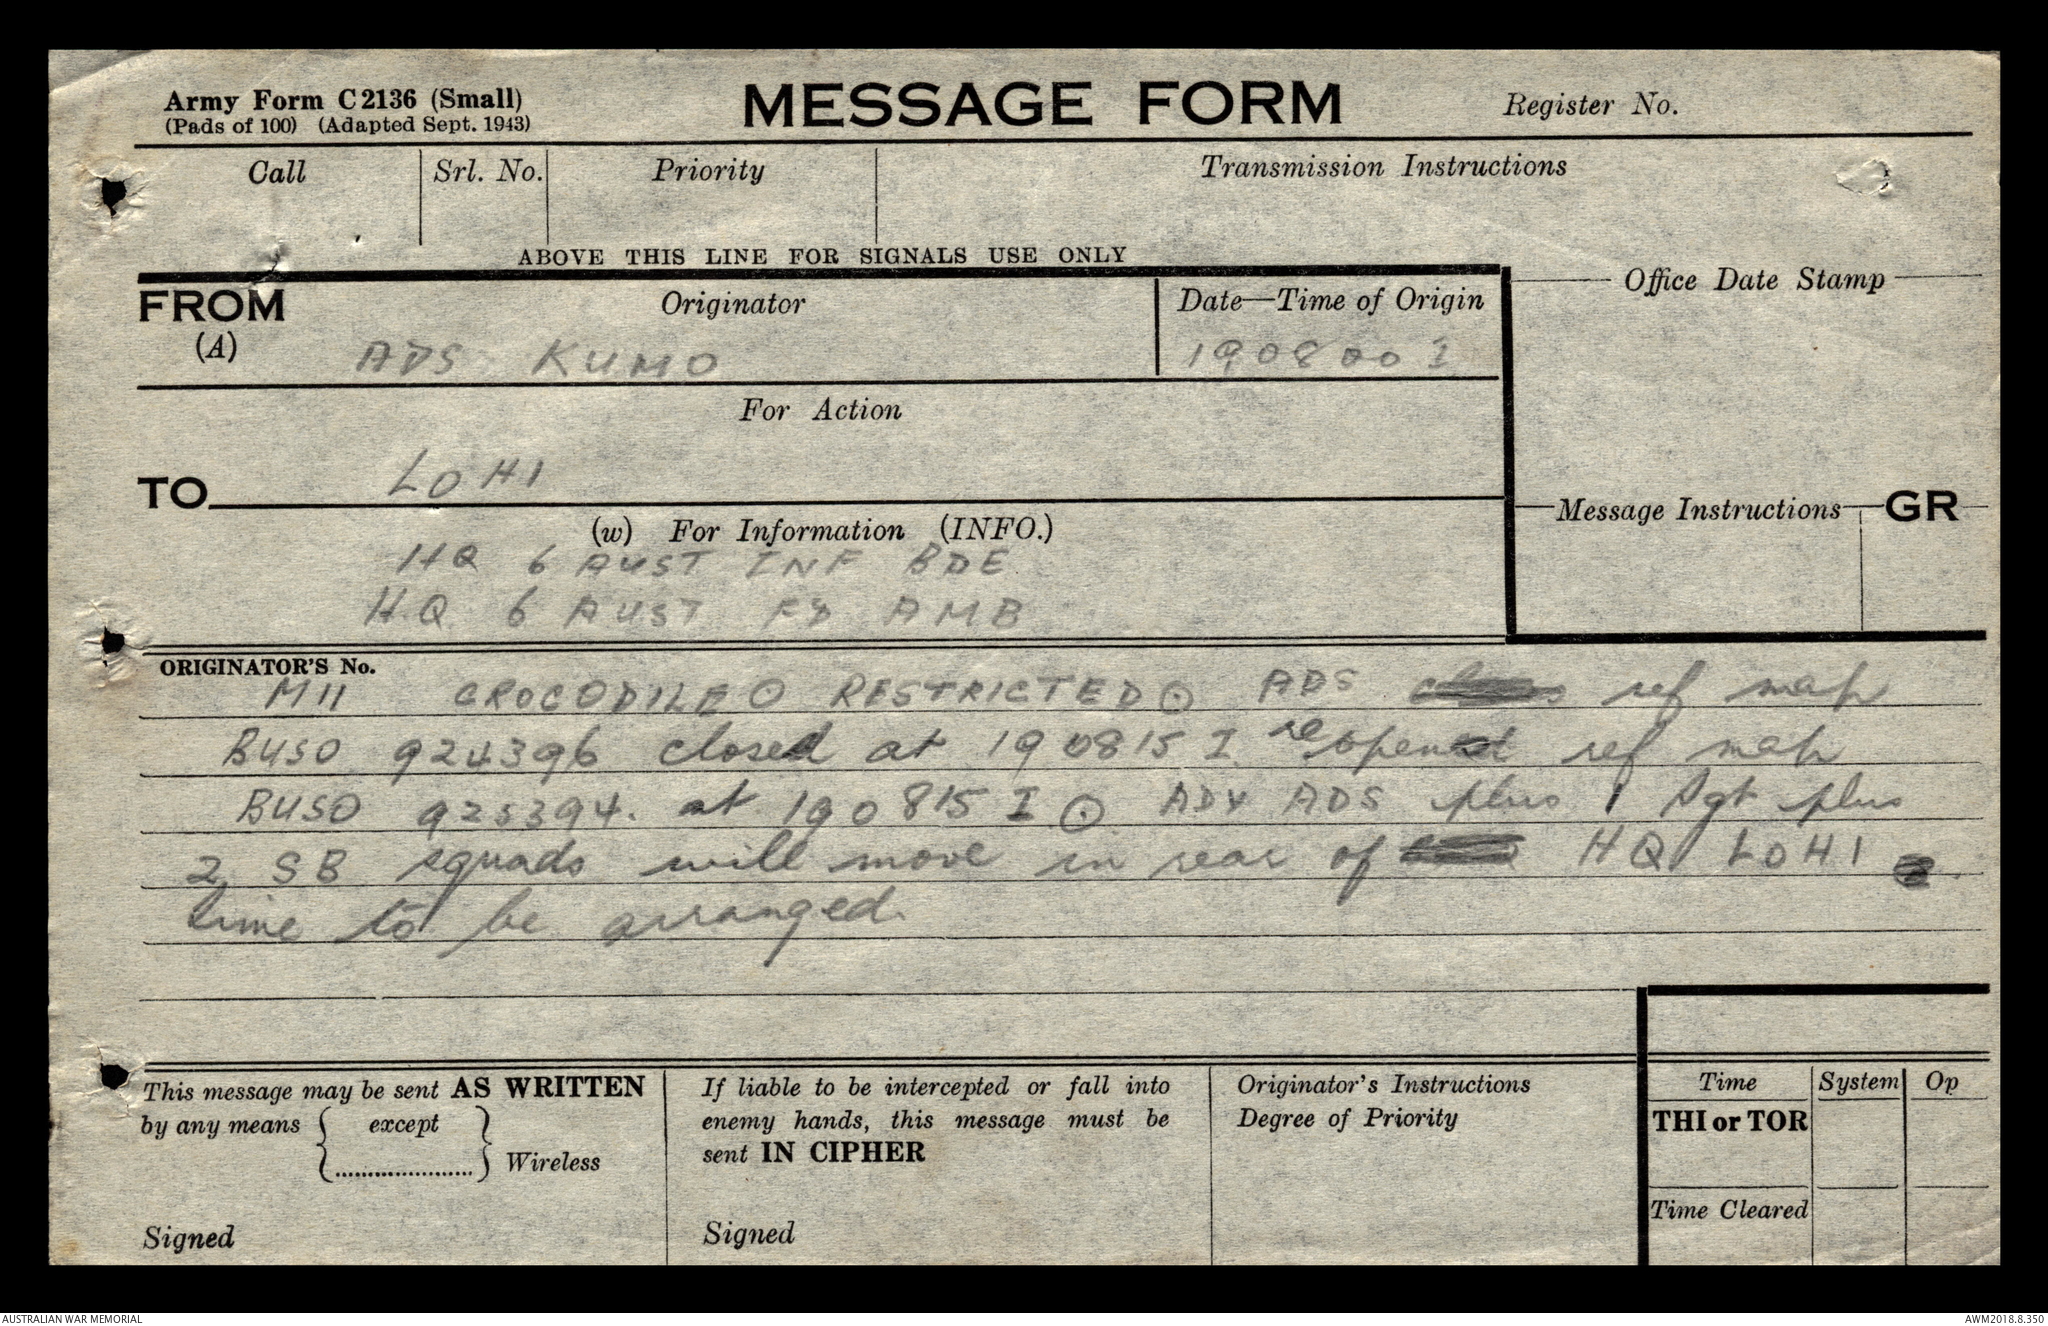 Army Form C2136 (Small)
(Pads of 100) (Adapted Sept. 1943)
MESSAGE FORM
Register No.
Call
Srl. No.
Priority
Transmission Instructions
ABOVE THIS LINE FOR SIGNALS USE ONLY
FROM
(A)
Originator
ADS KUMO
Date—Time of Origin
190800 I
Office Date Stamp
For Action
TO
LOHI
(w) For Information (INFO.)
HQ 6 AUST INF BDE
HQ 6 AUST FD AMB
Message Instructions
GR
ORIGINATOR'S No.
M11 CROCODILE ⊙ RESTRICTED ⊙ ADS ref map
BUSO 924396 closed at 190815 I reopened ref map
BUSO 923394. at 190815 I ⊙ ADV ADS plus 1 Sgt plus
2 SB squads will move in rear of HQ LOHI
time to be arranged.
This message may be sent AS WRITTEN
by any means { except } Wireless
Signed
If liable to be intercepted or fall into
enemy hands, this message must be
sent IN CIPHER
Signed
Originator's Instructions
Degree of Priority
Time
System
Op
THI or TOR
Time Cleared
AUSTRALIAN WAR MEMORIAL
AWM2018.8.350